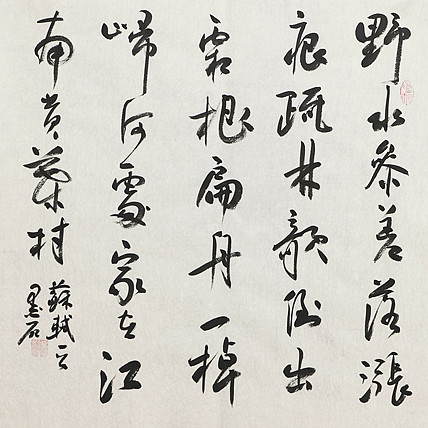 野水參差落漲
痕疏林欹倒出
霜根扁舟一棹
歸何處家在江
南黃葉村
蘇軾
墨石